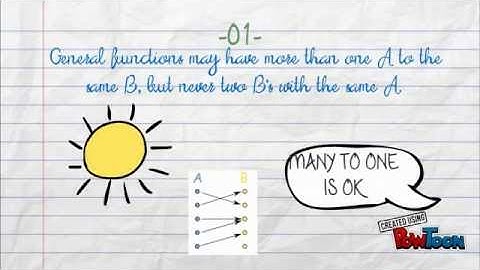 -01-
General functions may have more than one A to the
same B, but never two B's with the same A.
A B
MANY TO ONE
IS OK
CREATED USING
POWTOON